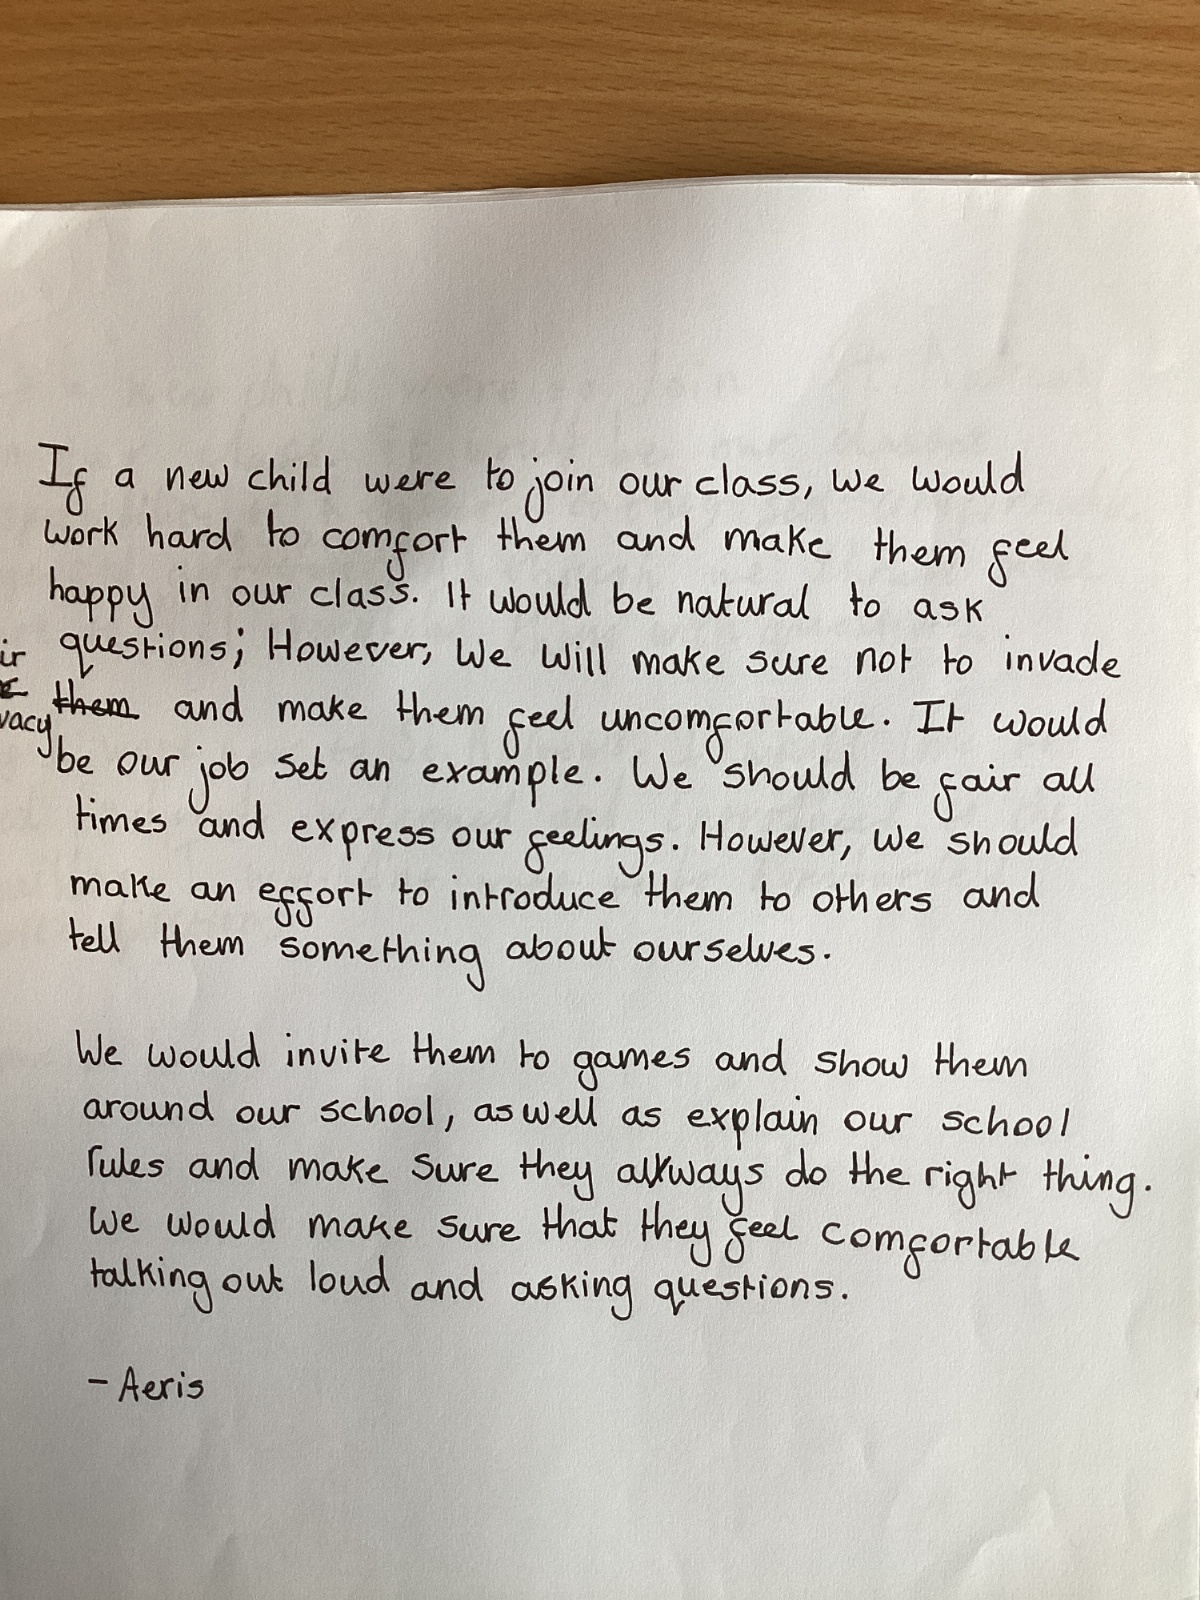 If a new child were to join our class, we would
work hard to comfort them and make them feel
happy in our class. It would be natural to ask
questions; However, We Will make sure not to invade
them and make them feel uncomfortable. It would
be our job set an example. We should be fair all
times and express our feelings. However, we should
make an effort to introduce them to others and
tell them something about ourselves.
We would invite them to games and show them
around our school, as well as explain our school
rules and make sure they always do the right thing.
We would make sure that they feel comfortable
talking out loud and asking questions.
- Aeris